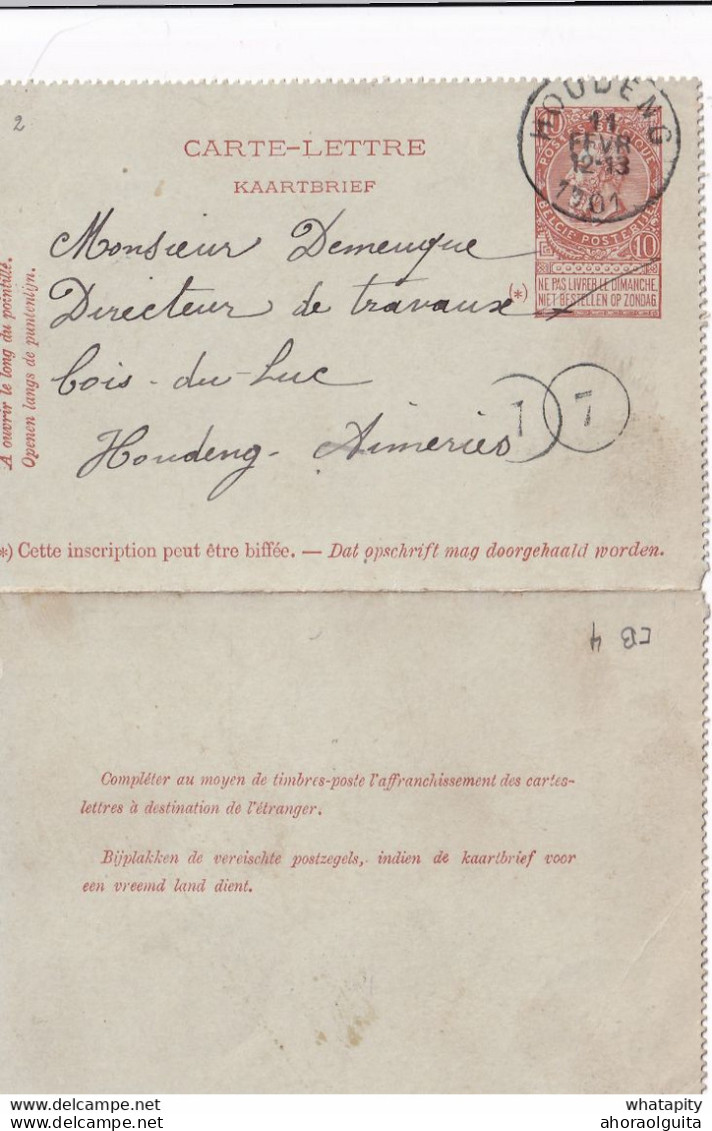 2
CARTE-LETTRE
KAARTBRIEF
HOUDENG
11
FEVR
12-13
1901
10
BELGIE POSTERIJEN
10
NE PAS LIVRER LE DIMANCHE.
NIET BESTELLEN OP ZONDAG
(*)
Monsieur Demeuque
Directeur de travaux
Bois-du-Luc
Houdeng-Aimeries
1
7
A ouvrir le long du pointillé.
Openen langs de puntenlijn.
*) Cette inscription peut être biffée. — Dat opschrift mag doorgehaald worden.
CB 4
Compléter au moyen de timbres-poste l'affranchissement des cartes-
lettres à destination de l'étranger.
Bijplakken de vereischte postzegels, indien de kaartbrief voor
een vreemd land dient.
whatapity
ahoraolguita